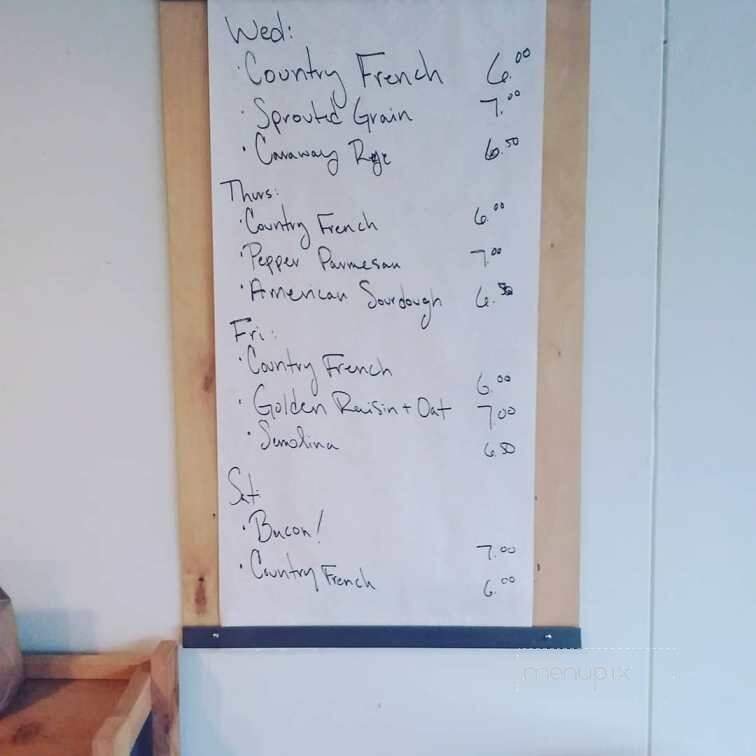 Wed:
· Country French 6.00
· Sprouted Grain 7.00
· Caraway Rye 6.50
Thurs:
· Country French 6.00
· Pepper Parmesan 7.00
· American Sourdough 6.50
Fri:
· Country French 6.00
· Golden Raisin + Oat 7.00
· Semolina 6.50
Sat:
· Bacon! 7.00
· Country French 6.00
menupix